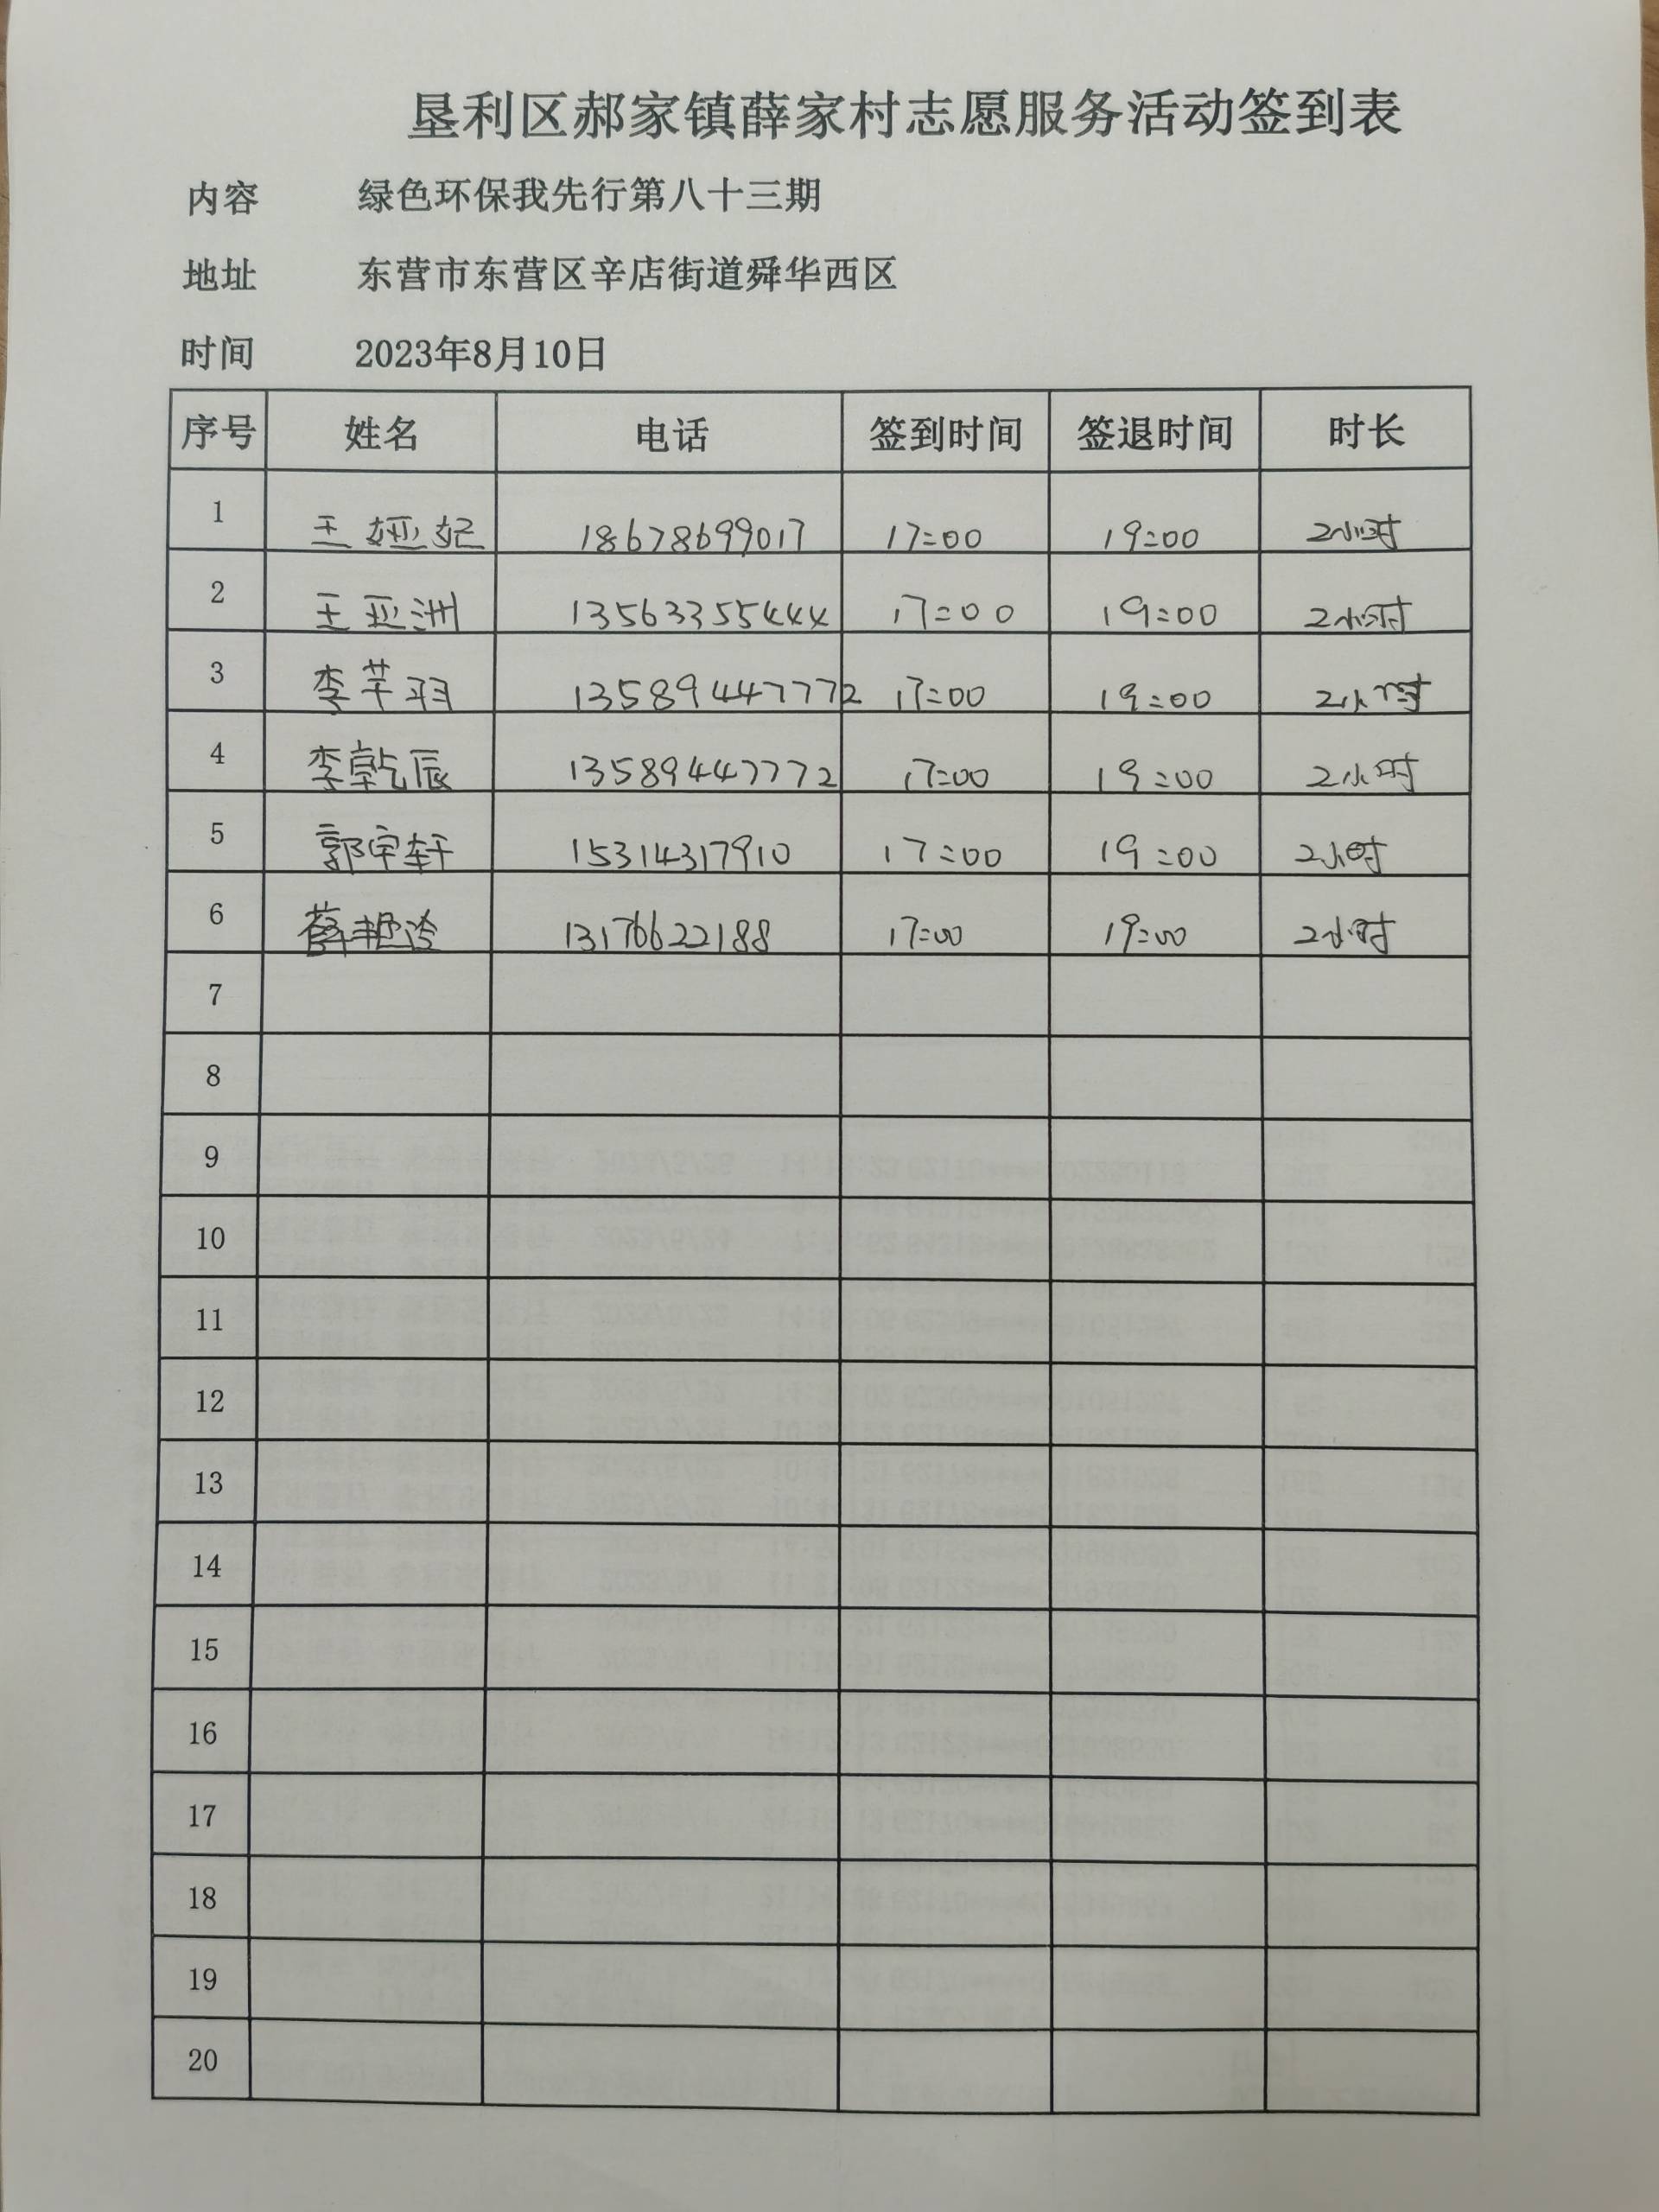 垦利区郝家镇薛家村志愿服务活动签到表
内容 绿色环保我先行第八十三期
地址 东营市东营区辛店街道舜华西区
时间 2023年8月10日
序号 姓名 电话 签到时间 签退时间 时长
1 王娅妃 18678699017 17:00 19:00 2小时
2 王亚洲 13563355444 17:00 19:00 2小时
3 李芊羽 13589447772 17:00 19:00 2小时
4 李乾辰 13589447772 17:00 19:00 2小时
5 郭宇轩 15314317910 17:00 19:00 2小时
6 薛艳玲 13176622188 17:00 19:00 2小时
7
8
9
10
11
12
13
14
15
16
17
18
19
20